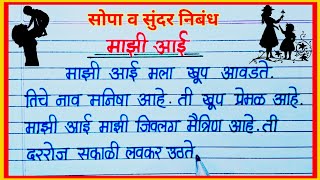 सोपा व सुंदर निबंध
माझी आई
माझी आई मला खूप आवडते.
तिचे नाव मनिषा आहे. ती खूप प्रेमळ आहे.
माझी आई माझी जिवलग मैत्रिण आहे. ती
दररोज सकाळी लवकर उठते.